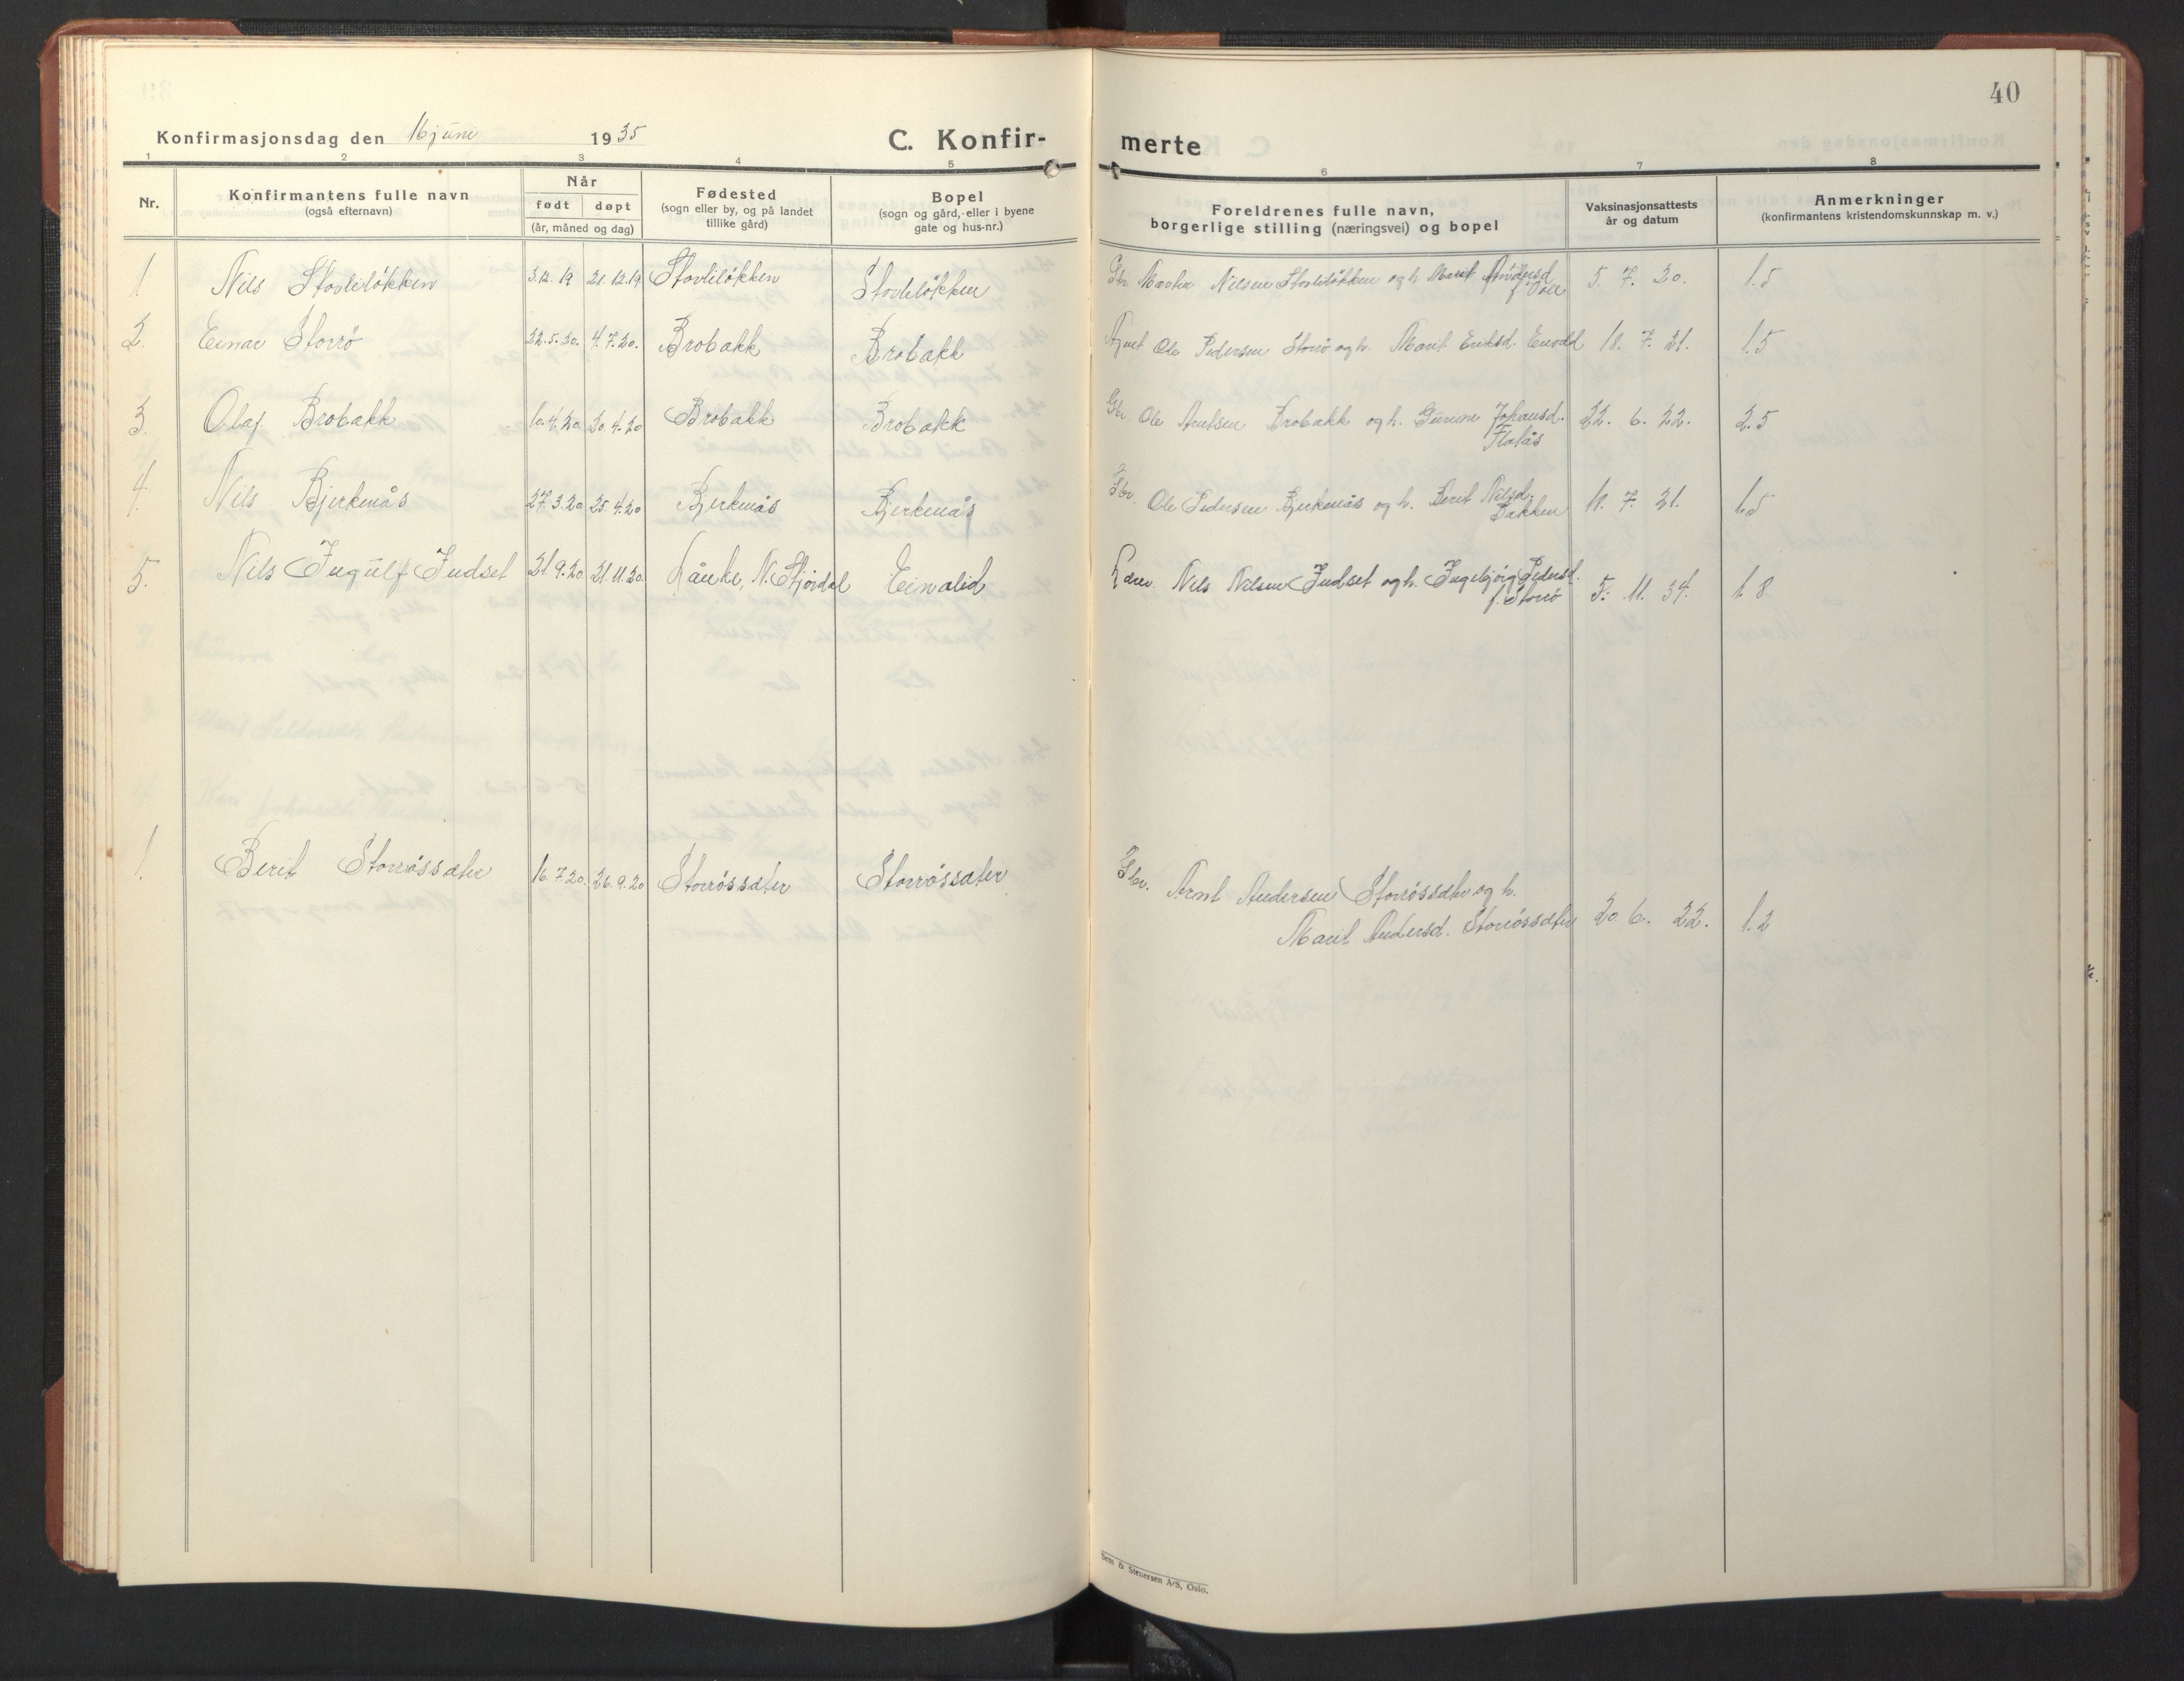 40
Konfirmasjonsdag den 16 juni 1935 C. Konfir- merte
1 2 3 4 5 6 7 8
Nr. Konfirmantens fulle navn (også efternavn) Når født døpt (år, måned og dag) Fødested (sogn eller by, og på landet tillike gård) Bopel (sogn og gård, eller i byene gate og hus-nr.) Foreldrenes fulle navn, borgerlige stilling (næringsvei) og bopel Vaksinasjonsattests år og datum Anmerkninger (konfirmantens kristendomskunnskap m. v.)
1 Nils Stovliløkken 3.12.19 21.12.19 Stovliløkken Stovliløkken Gbr. Martin Nilsen Stovliløkken og h. Marit Amundsd. 5. 7. 30. 1.5
f. Voll
2. Einar Storrø 22.5.20. 4.7.20. Brobakk Brobakk Ole Pedersen Storrø og h. Marit Eriksd. Enodd 18. 7. 31. 1.5
3. Olaf Brobakk 10.4.20 20.4.20 Brobakk Brobakk Gbr. Ole Arntsen Brobakk og h. Gurine Johansd. 22. 6. 22. 2.5
Flatås
4. Nils Bjerkenås 27.3.20 25.4.20 Bjerkenås Bjerkenås Gbr. Ole Pedersen Bjerkenås og h. Berit Nilsd. 18. 7. 31. 1.5
Bakken
5. Nils Ingulf Indset 21.9.20 21.11.20. Lånke, N. Stjørdal Einalid Lærer. Nils Nilsen Indset og h. Ingebjørg Pedersd. 5. 11. 34. 1.8
f. Storrø
1. Berit Storrøssæter 16.7.20. 26.9.20 Storrøssæter Storrøssæter Gbr. Arnt Andersen Storrøssæter og h.
Marit Andersd. Storrøssæter 20. 6. 22. 1.2
Sem & Stenersen A/S, Oslo.